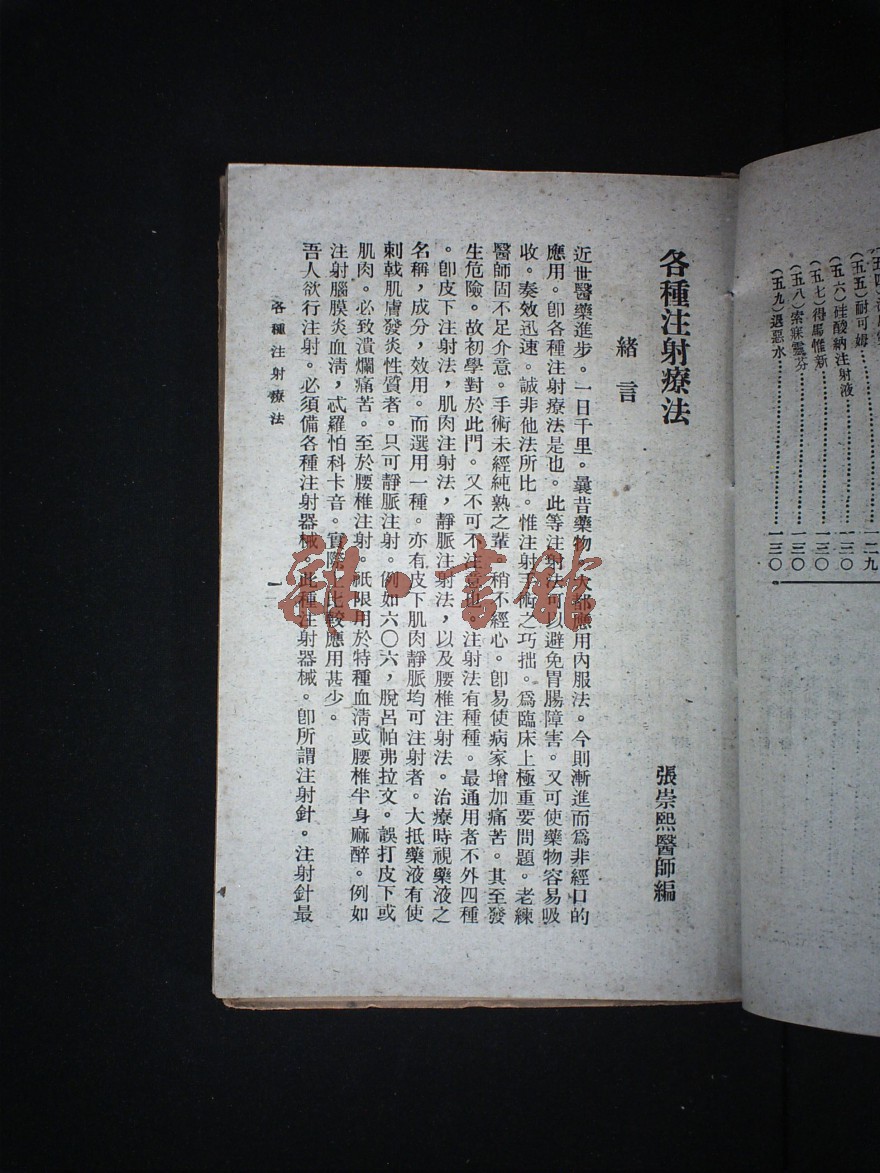 (五五)耐可姆………一二九
(五六)硅酸納注射液………一三〇
(五七)得馬惟新………一三〇
(五八)索寐靈芬………一三〇
(五九)退惡水………一三〇
各種注射療法
張崇熙醫師編
緒言
近世醫藥進步。一日千里。曩昔藥物。大都應用內服法。今則漸進而爲非經口的
應用。卽各種注射療法是也。此等注射法可以避免胃腸障害。又可使藥物容易吸
收。奏效迅速。誠非他法所比。惟注射手術之巧拙。爲臨床上極重要問題。老練
醫師固不足介意。手術未經純熟之輩。稍不經心。卽易使病家增加痛苦。甚至發
生危險。故初學對於此門。又不可不注意也。注射法有種種。最通用者不外四種
。卽皮下注射法，肌肉注射法，靜脈注射法，以及腰椎注射法。治療時視藥液之
名稱，成分，效用。而選用一種。亦有皮下肌肉靜脈均可注射者。大抵藥液有使
刺戟肌膚發炎性質者。只可靜脈注射。例如六〇六，脫呂帕弗拉文。誤打皮下或
肌肉。必致潰爛痛苦。至於腰椎注射。祇限用於特種血淸或腰椎半身麻醉。例如
注射腦膜炎血淸，忒羅怕科卡音。實際上比較應用甚少。
吾人欲行注射。必須備各種注射器械。此種注射器械。卽所謂注射針。注射針最
各種注射療法
一
雜·書館